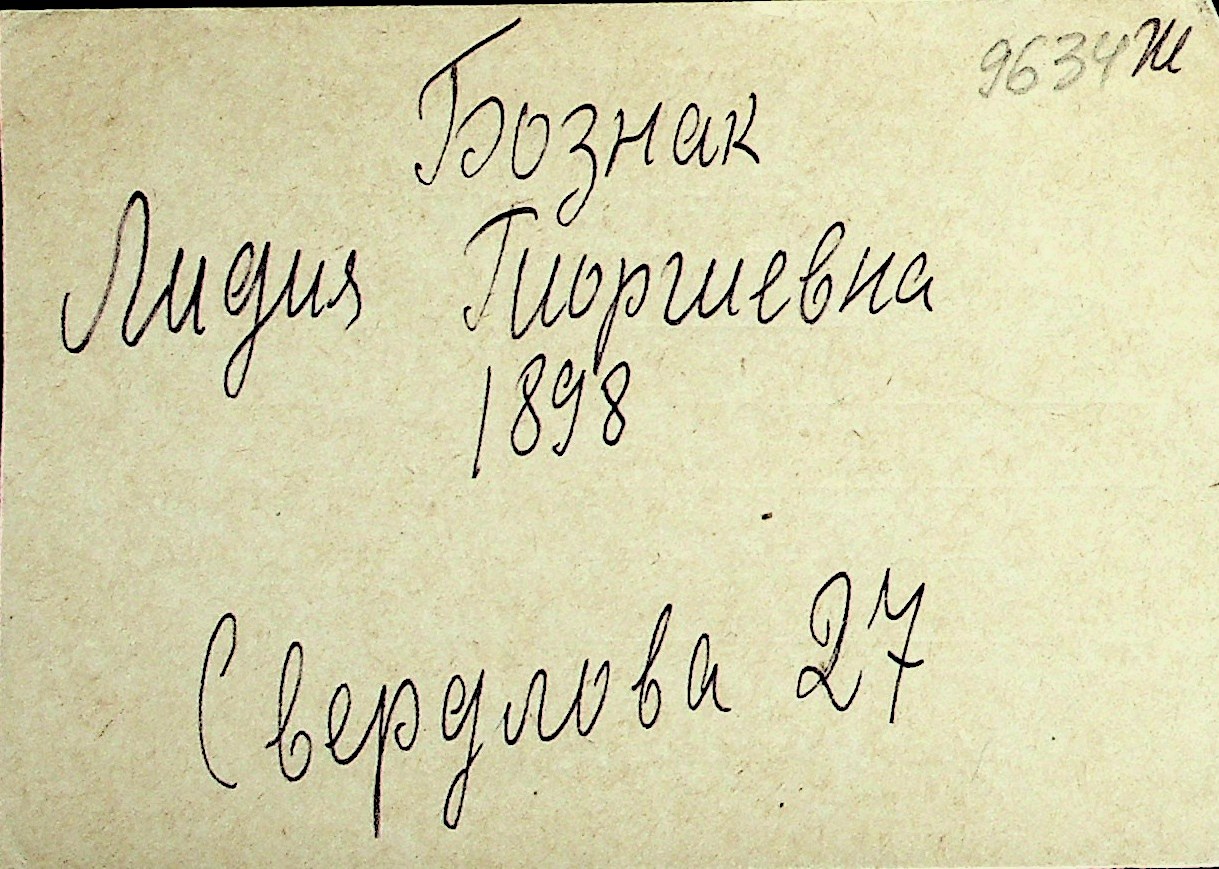 9634 Ж
Бознак
Лидия Гиоргиевна
1898
Свердлова 27